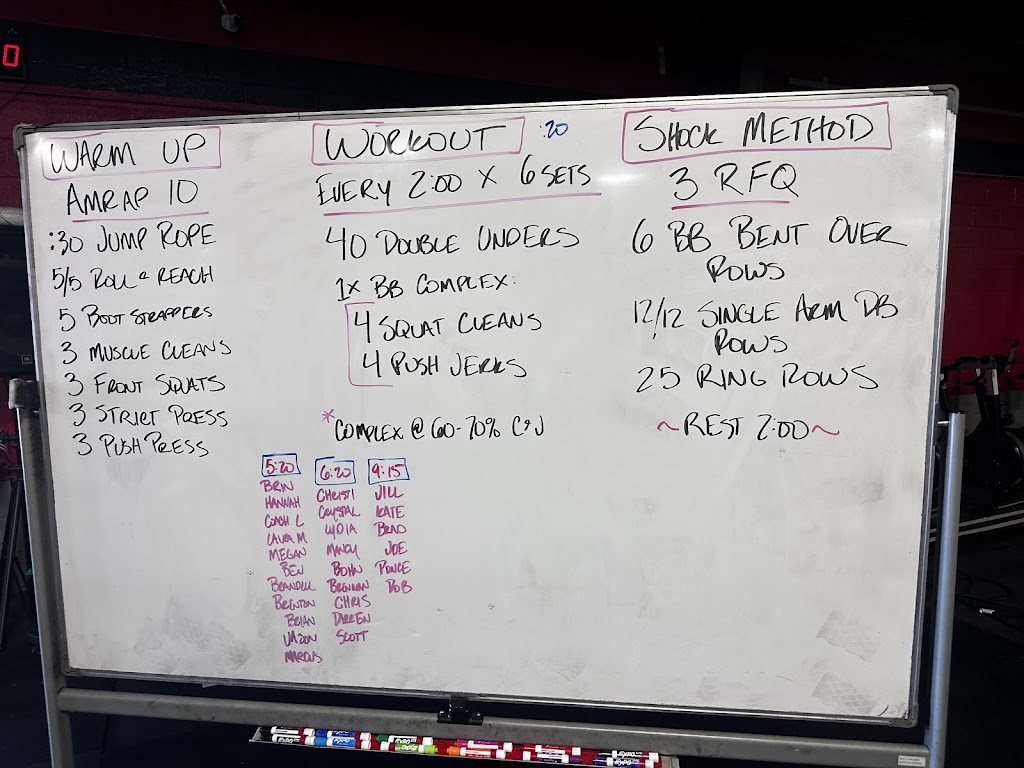 0
WARM UP
AMRAP 10
:30 JUMP ROPE
5/5 ROLL & REACH
5 BOOT STRAPPERS
3 MUSCLE CLEANS
3 FRONT SQUATS
3 STRICT PRESS
3 PUSH PRESS
WORKOUT :20
EVERY 2:00 X 6 SETS
40 DOUBLE UNDERS
1X BB COMPLEX:
4 SQUAT CLEANS
4 PUSH JERKS
* COMPLEX @ 60-70% C&J
SHOCK METHOD
3 RFQ
6 BB BENT OVER
ROWS
12/12 SINGLE ARM DB
ROWS
25 RING ROWS
~REST 2:00~
5:20
BRIN
HANNAH
COACH L
LAURA M
MEGAN
BEN
BRANDEE
BRENTON
BRIAN
JASON
MARCUS
6:20
CHRISTI
CRYSTAL
LYDIA
MANDY
BOHN
BRENNAN
CHRIS
DARREN
SCOTT
9:15
JILL
KATE
BRAD
JOE
PONCE
ROB
EXPO